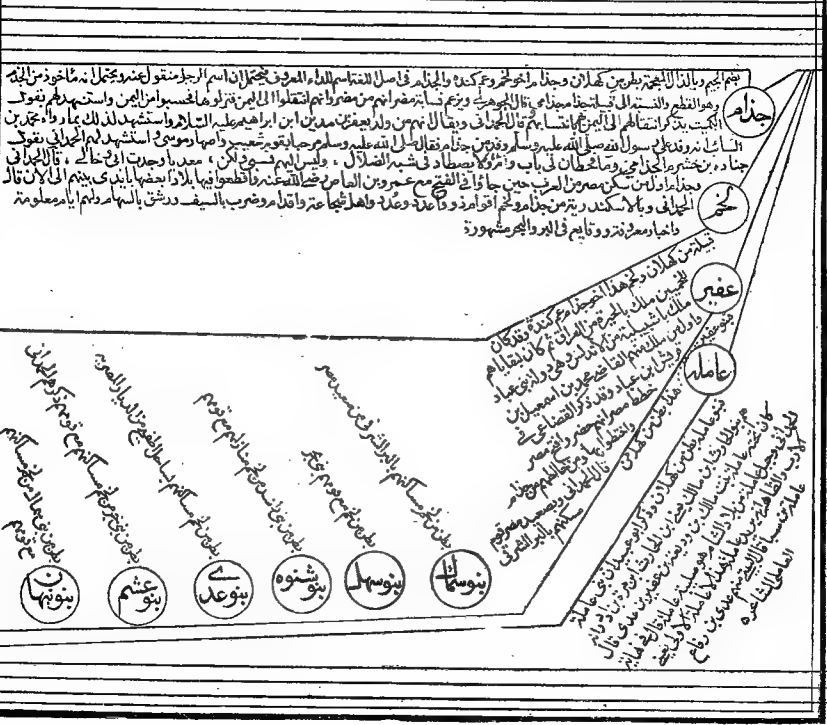 جذام
بضم الجيم وبالذال المعجمة بطن من كهلان وجذام اخو لخم وعم كندة والجذام في اصل اللغة اسم للداء المعروف فيحتمل ان اسم الرجل منقول عنه ويحتمل انه مأخوذ من الجذم
وهو القطع والنسبة الى قبيلة جذام جذامي قال الجوهري ويزعم نسابة مضر انهم من مضر وانهم انتقلوا الى اليمن فنزلوها فحسبوا من اليمن واستشهد لهم بقول
الكميت يذكر انتقالهم الى اليمن قال الحمداني ويقال انهم من ولد يعفر بن مدين ابن ابراهيم عليه السلام واستشهد لذلك بما رواه محمد بن
السائب انه وفد على رسول الله صلى الله عليه وسلم وفد من جذام فقال صلى الله عليه وسلم مرحبا بقوم شعيب واصهار موسى واستشهد لهم الحمداني بقول
جنادة بن خشرم الجذامي وما قحطان لي باب وام ولا تصطاد في شبه الضلال وليس اليهم نسبي ولكن معديا وجدت ابي وخالي قال الحمداني
وجذام اول من سكن مصر من العرب حين جاؤا في الفتح مع عمرو بن العاص رضي الله عنه واقطعوا فيها بلادا بعضها بايدي بنيهم الى الان قال
الحمداني وبالاسكندرية من جذام ولخم اقوام ذووا عدد وعدد واهل شجاعة واقدام وضرب بالسيف ورشق بالسهام ولهم ايام معلومة
واخبار معروفة ووقايع في البر والبحر مشهورة
لخم
قبيلة من كهلان ولخم هذا اخو جذام وعم كندة وقد كان
للخميين ملك بالحيرة من العراق ثم كان لبقاياهم
ملك باشبيلية من الاندلس وهي دولة بني عباد
واول من ملك منهم القاضي محمد بن اسمعيل بن
قريش ابن عباد وقد ذكر القضاعي في
خطط مصر انهم حضروا فتح مصر
واختطوا بها ومن خالطهم من جذام
قال الحمداني وبصعيد مصر قوم
سكنهم بالبر الشرقي
عفير
بنو عفير
هذا بطن من كهلان
عاملة
بنو عاملة بطن من كهلان وذكر ابو عبيد ان بني عاملة
هم بنو الحارث ابن مالك يعني ابن الحارث ابن مرة بن ادد وانه
كان تحته عاملة بنت مالك بن وديعة بن عفير بن عدي قال
الحمداني وجبل عاملة من بلاد الشام هو منهم
عاملة بن سبا قال منهم عدي بن رقاع
العاملي الشاعر
بنو سماك
بطن من لخم مساكنهم بالبر الشرقي من صعيد مصر
بنو سهل
بطن من لخم مع قومهم
بنو شنوة
بطن من بني من لخم مع قومهم
بنو عدي
بطن من لخم مساكنهم من الديار المصرية
بنو عشم
بطن من بني من لخم مساكنهم مع قومهم ذكرهم الحمداني
بنو نبهان
بطن من بني سماك من لخم مساكنهم
مع قومهم